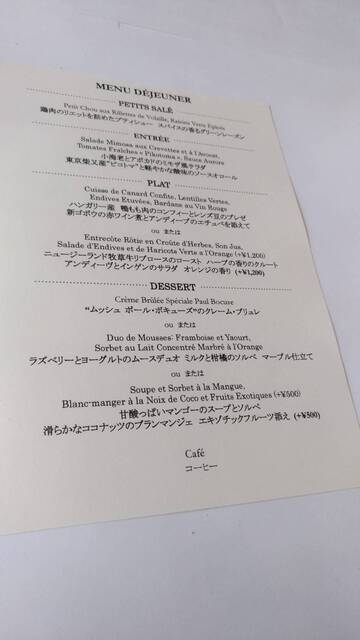 MENU DÉJEUNER
PETITS SALÉ
Petit Chou aux Rillettes de Volaille, Raisins Verts Épicés
鶏肉のリエットを詰めたプティシュー スパイスの香るグリーンレーズン
ENTRÉE
Salade Mimosa aux Crevettes et à l'Avocat,
Tomates Fraîches « Pikotoma », Sauce Aurore
小海老とアボカドのミモザ風サラダ
東京柴又産"ピコトマ"と軽やかな酸味のソースオロール
PLAT
Cuisse de Canard Confite, Lentilles Vertes,
Endives Étuvées, Bardane au Vin Rouge
ハンガリー産 鴨もも肉のコンフィーとレンズ豆のブレゼ
新ゴボウの赤ワイン煮とアンディーブのエチュベを添えて
ou または
Entrecôte Rôtie en Croûte d'Herbes, Son Jus,
Salade d'Endives et de Haricots Verts à l'Orange (+¥1,200)
ニュージーランド牧草牛リブロースのロースト ハーブの香りのクルート
アンディーヴとインゲンのサラダ オレンジの香り (+¥1,200)
DESSERT
Crème Brûlée Spéciale Paul Bocuse
"ムッシュ ポール・ボキューズ"のクレーム・ブリュレ
ou または
Duo de Mousses: Framboise et Yaourt,
Sorbet au Lait Concentré Marbré à l'Orange
ラズベリーとヨーグルトのムースデュオ ミルクと柑橘のソルベ マーブル仕立て
ou または
Soupe et Sorbet à la Mangue,
Blanc-manger à la Noix de Coco et Fruits Exotiques (+¥500)
甘酸っぱいマンゴーのスープとソルベ
滑らかなココナッツのブランマンジェ エキゾチックフルーツ添え (+¥500)
Café
コーヒー